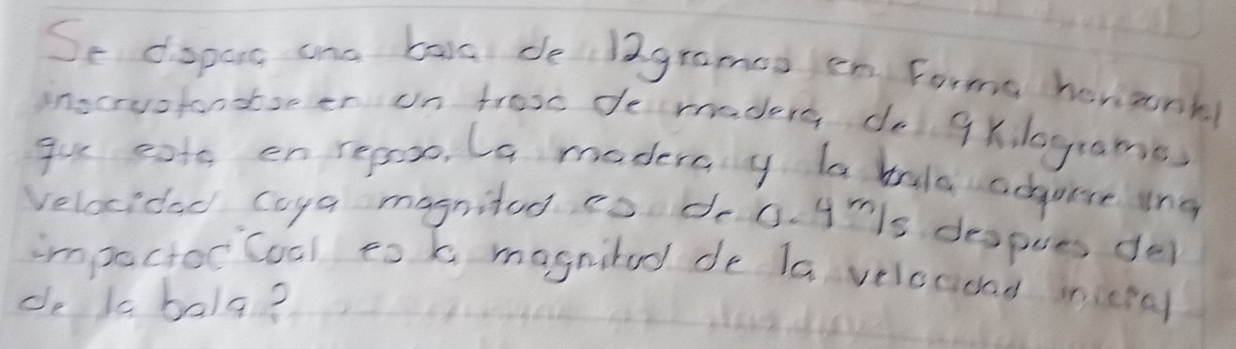 Se dispara una bala de 12gramos en Forma horizontal
incrustandose en un troso de madera de 9Kilogramos
que esta en reposo. La madera y la bala adquiere una
velocidad cuya magnitud es de 0.4 m/s despues del
impacto ¿Cual es la magnitud de la velocidad inicial
de la bala?